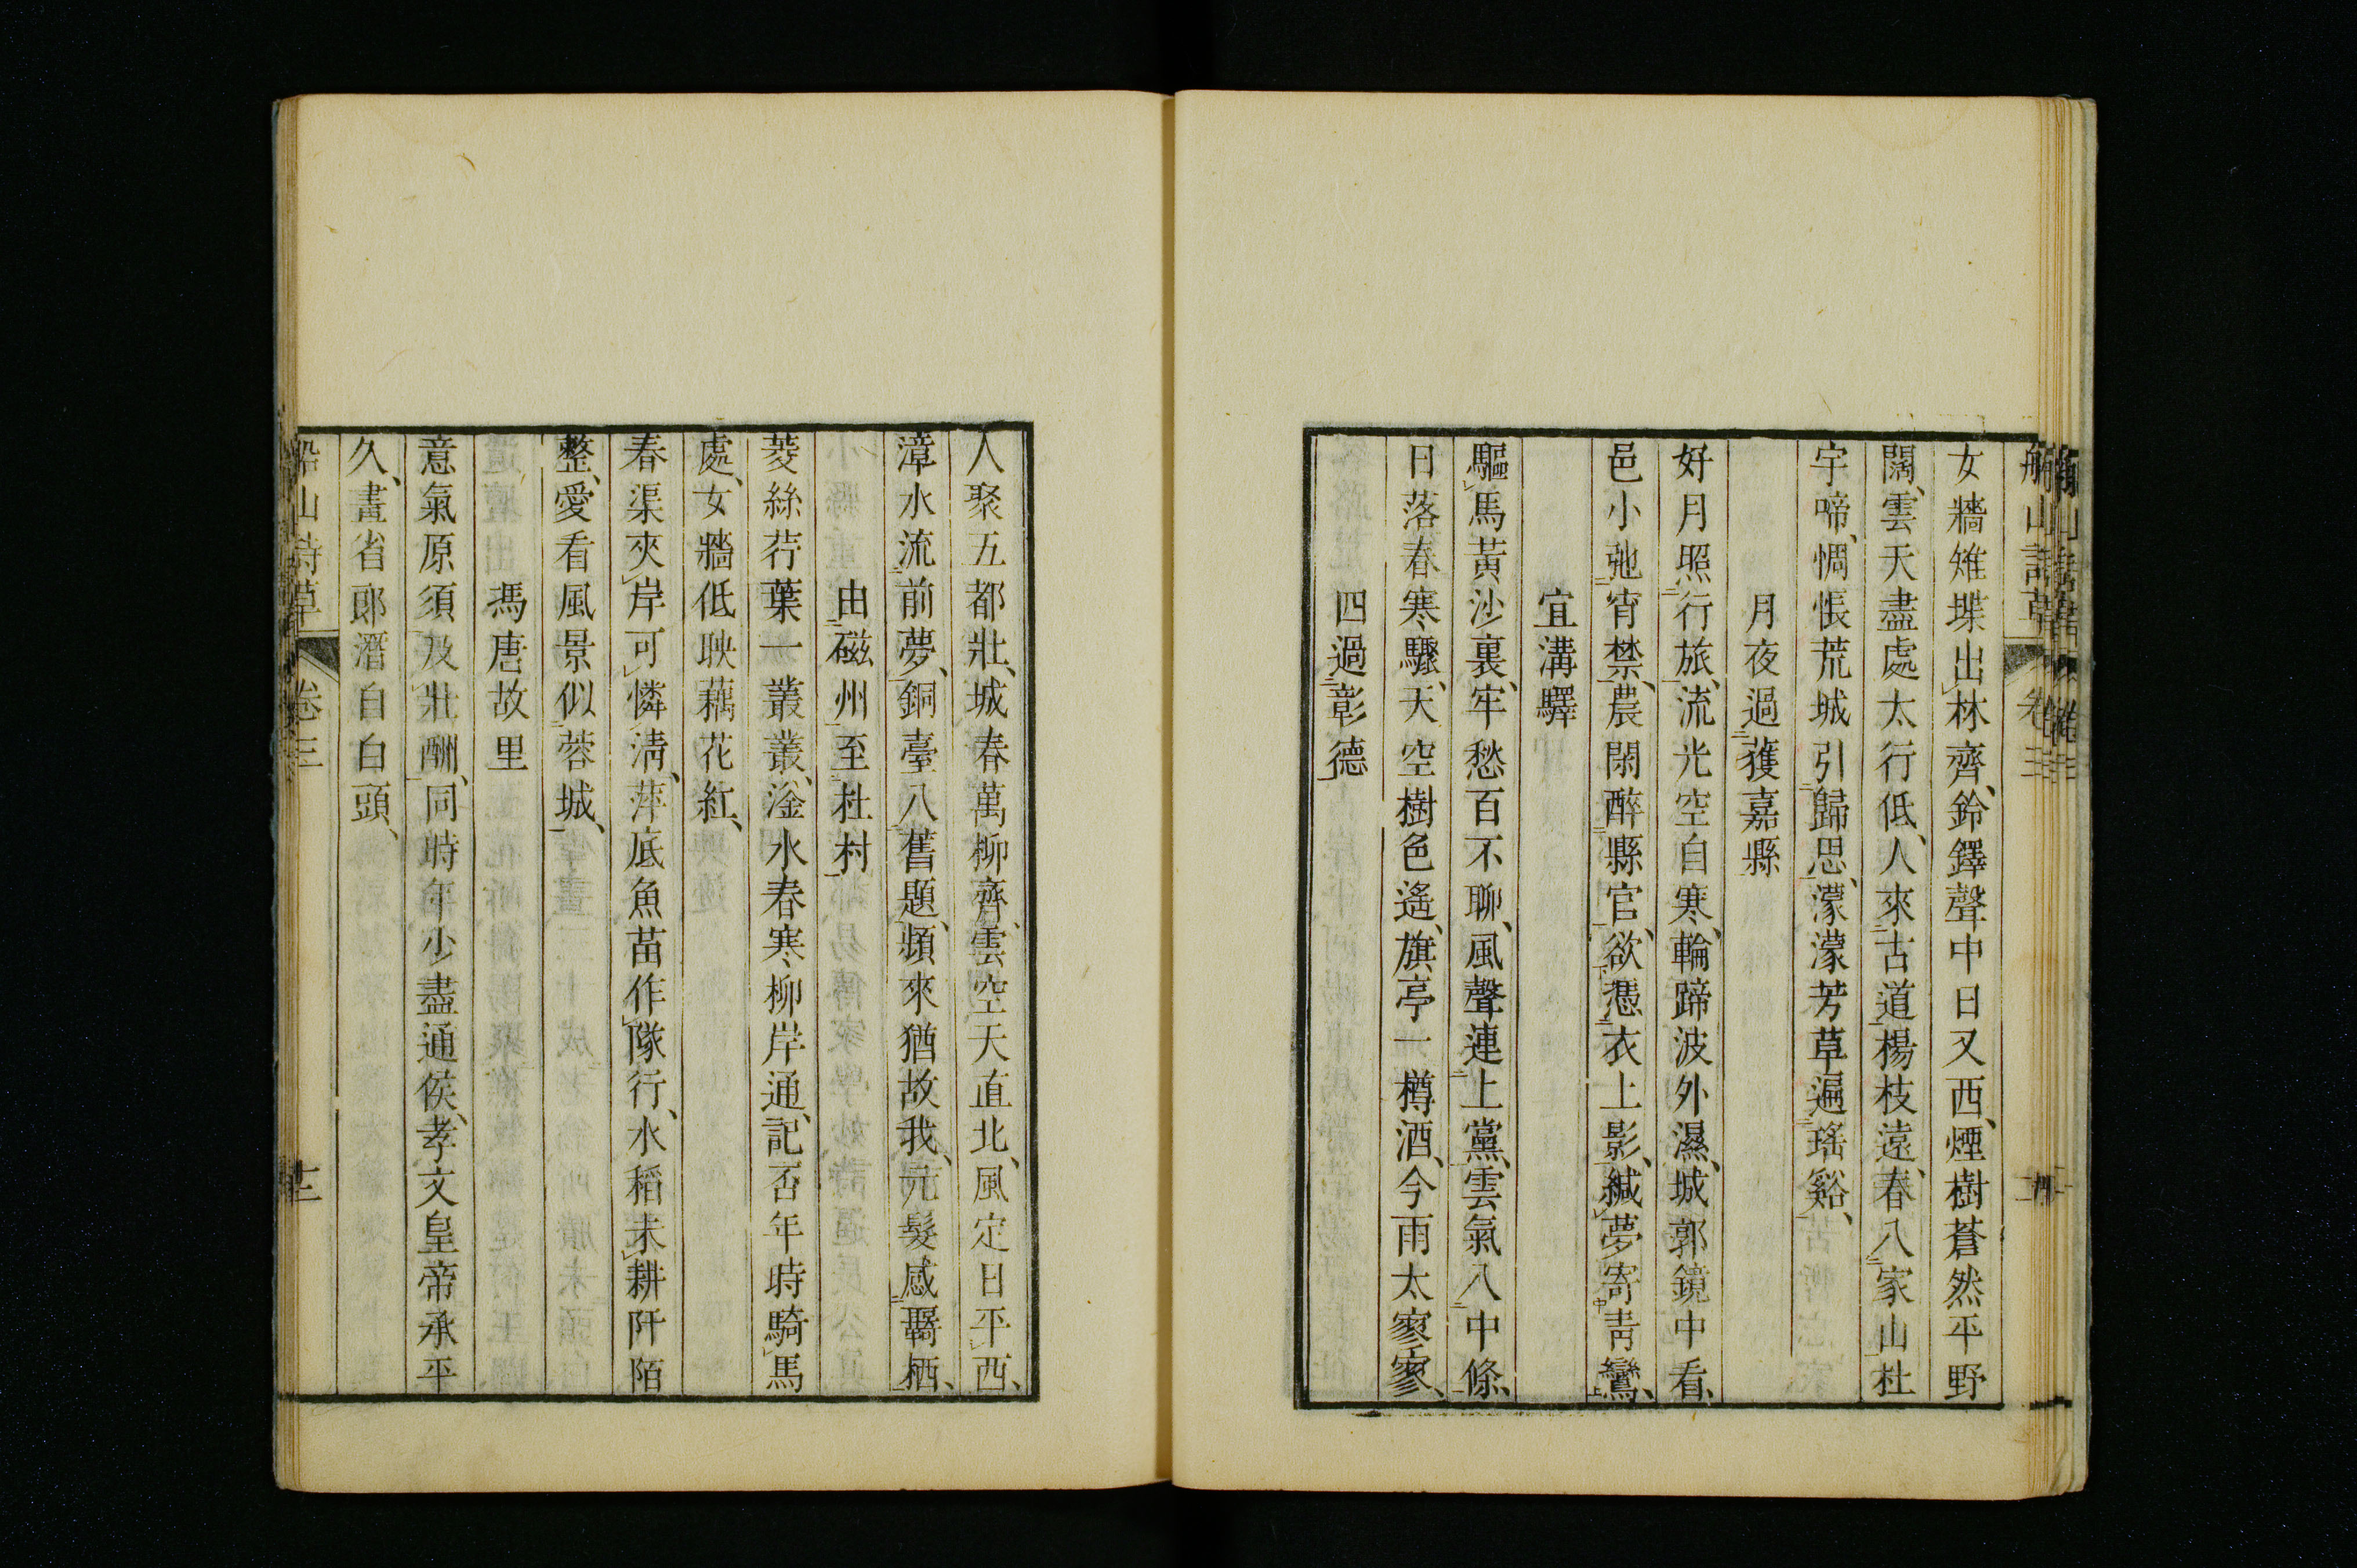 船山詩草 卷三
女牆雉堞出林齊、鈴鐸聲中日又西、煙樹蒼然平野
闊、雲天盡處太行低、人來古道楊枝遠、春入家山杜
宇啼、惆悵荒城引歸思、濛濛芳草遍瑤谿、
月夜過獲嘉縣
好月照行旅、流光空自寒、輪蹄波外濕、城郭鏡中看、
邑小弛宵禁、農閑醉縣官、欲憑衣上影、緘夢寄青鸞、
宜溝驛
驅馬黃沙裏、牢愁百不聊、風聲連上黨、雲氣入中條、
日落春寒驟、天空樹色遙、旗亭一樽酒、今雨太寥寥、
四過彰德
人聚五都壯、城春萬柳齊、雲空天直北、風定日平西、
漳水流前夢、銅臺入舊題、頻來猶故我、元髮感羈栖、
由磁州至杜村
菱絲荇葉一叢叢、滏水春寒柳岸通、記否年時騎馬
處、女牆低映藕花紅、
春渠夾岸可憐淸、萍底魚苗作隊行、水稻未耕阡陌
整、愛看風景似蓉城、
馮唐故里
意氣原須及壯酬、同時年少盡通侯、孝文皇帝承平
久、畫省郞潛自白頭、
船山詩草 卷三 十三